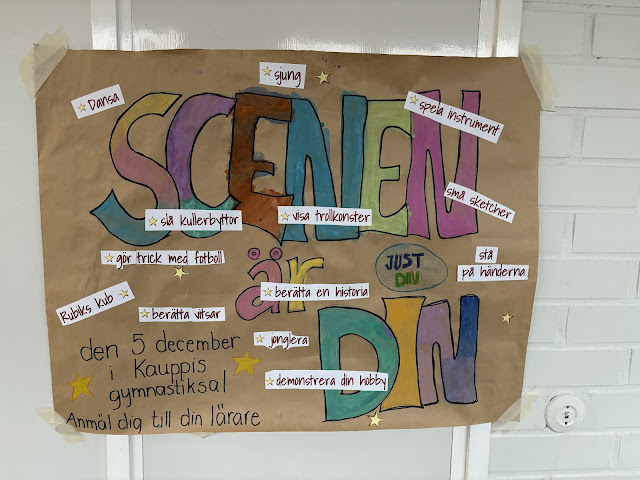 sjung
Dansa
spela instrument
SCENEN
små sketcher
slå kullerbyttor
visa trollkonster
gör trick med fotboll
är
JUST
DIN
stå
på händerna
Rubiks kub
berätta en historia
berätta vitsar
DIN
jonglera
den 5 december
i Kauppis
gymnastiksal
demonstrera din hobby
Anmäl dig till din lärare